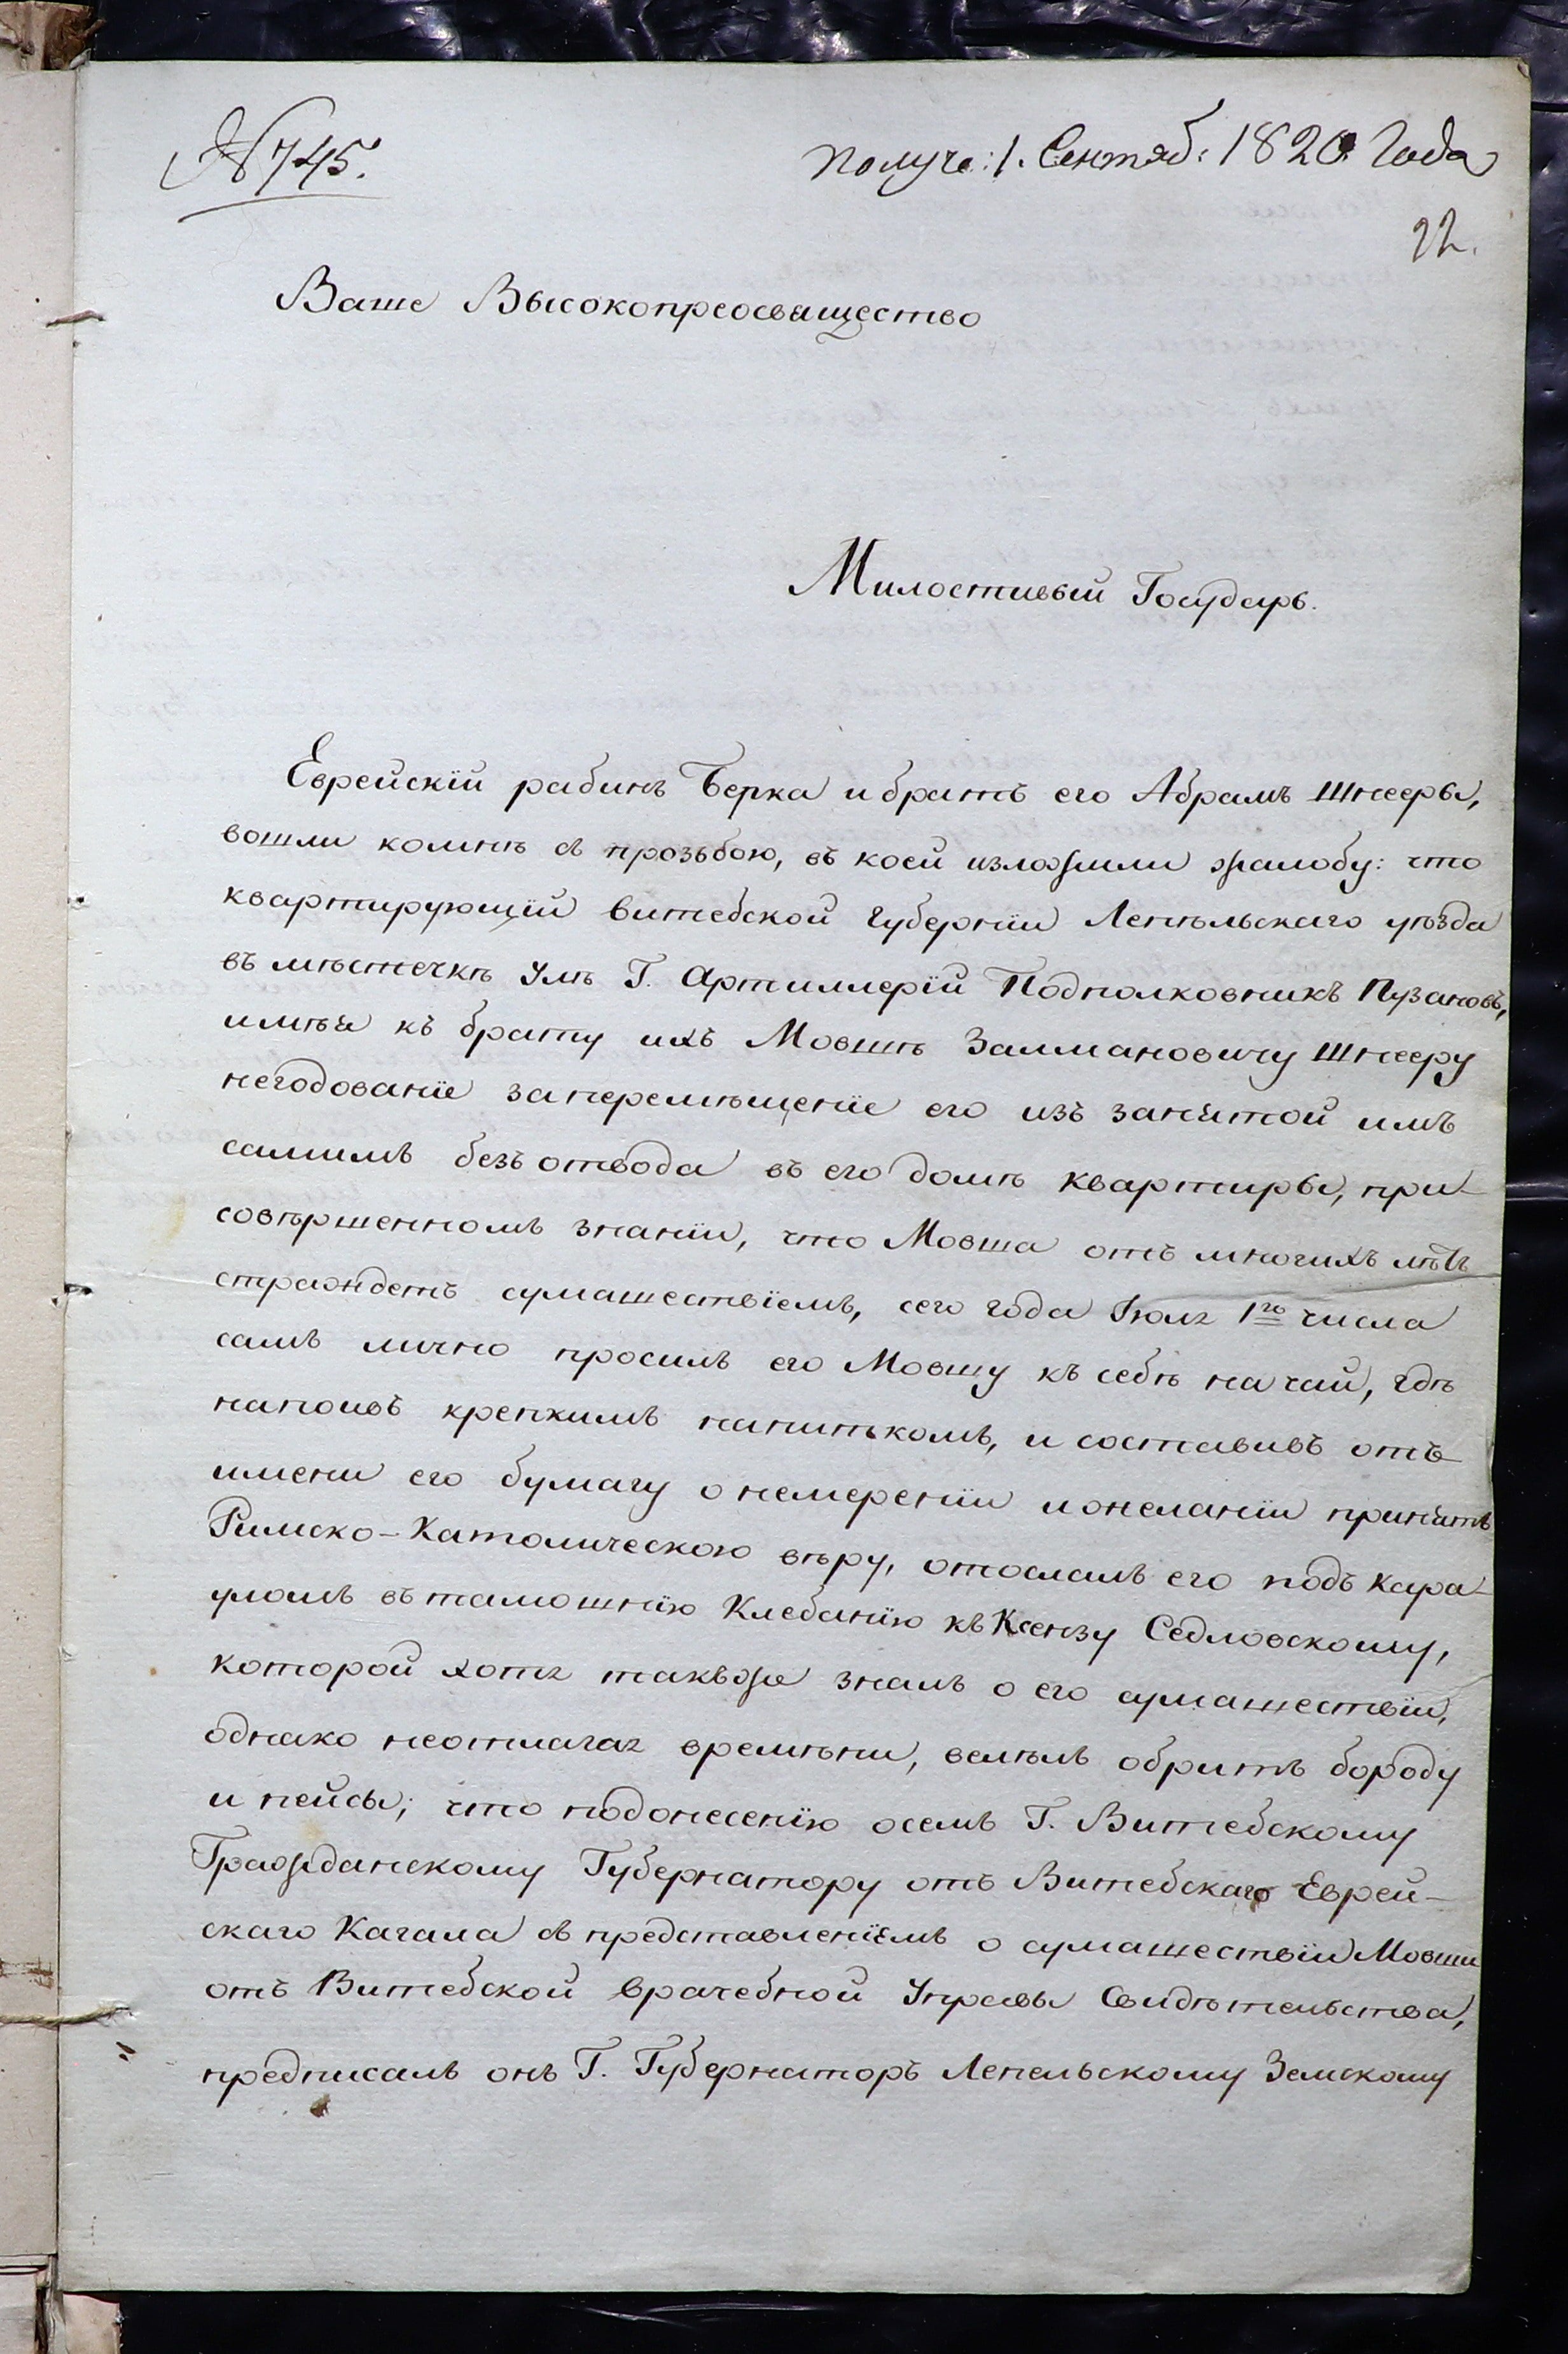 № 745.
Получе: 1. Сентяб: 1820 Года
22.
Ваше Высокопреосвященство
Милостивый Государь.
Еврейскїй рабинъ Берка и братъ его Абрамъ Шнееры,
вошли комнѣ съ прозьбою, въ коей изложили жалобу: что
квартирующїй витебской Губернїи Лепѣльскаго уѣзда
въ мѣстечкѣ Улѣ Г. Артиллерїй Подполковникъ Пузановъ,
имѣя къ брату ихъ Мовшѣ Залмановичу Шнееру
негодованїе заперемѣщенїе его изъ занятой имъ
самимъ безъ отвода въ его домѣ квартиры, при
совѣршенномъ знанїи, что Мовша отъ многихъ лѣтъ
страждетъ сумашествїемъ, сего года Іюля 1го числа
самъ лично просилъ его Мовшу къ себѣ на чай, гдѣ
напоивъ крепкимъ напиткомъ, и составивъ отъ
имени его бумагу о немеренїи ижеланїи принять
Римско-Католическою вѣру, отослалъ его подъ кара-
уломъ въ тамошнїю Клебанїю къ Ксензу Седловскому,
которой хотя такъже зналъ о его сумашествїи,
однако неотлагая времѣни, велѣлъ обрить бороду
и пейсы; что подонесенїю осемъ Г. Витебскому
Гражданскому Губернатору отъ Витебскаго Еврей-
скаго Кагала съ представленїемъ о сумашествїи Мовши
отъ Витебской врачебной Управы Свидѣтельства,
предписалъ онъ Г. Губернаторъ Лепельскому Земскому